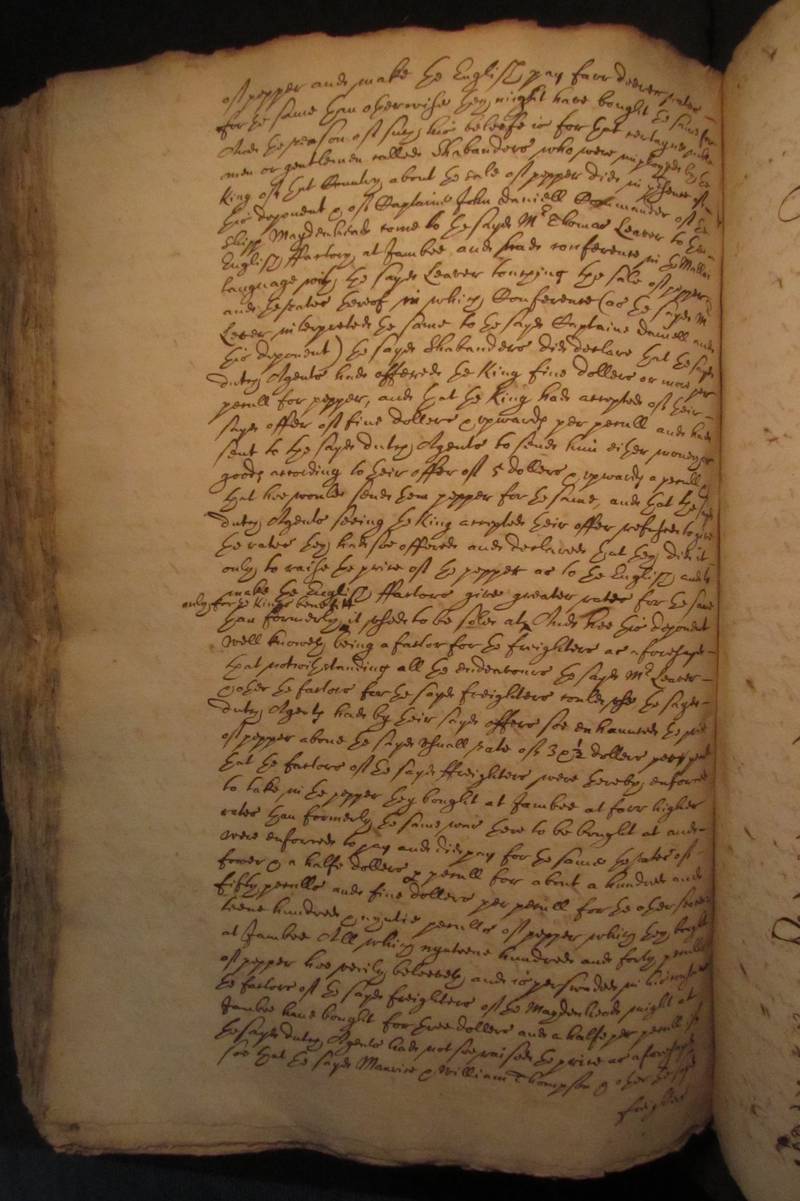 of pepper and make the English pay farr deerer rates
for the same than otherwise they might have bought the same for
And the reason of such his beleefe is for that certayne
men or gentlemen called Shabanders who were imployed by the
King of that Country about the sale of pepper did in presence of
this deponent & of Captaine John Daniell Commander of the
shipp Maydenhead come to the sayd Mr Thomas Leaver to the
English Factory at Jambee and had conference in the Mallai
language with the sayd Leaver touching the sale of pepper
and the rates thereof in which Conference (as the sayd Mr
Lever interpreted the same to the sayd Captaine Daniell and
this deponent) the sayd Shabanders did declare that the sayd
dutch Agents had offered the King five dollers or more per
pecull for pepper, and that the King had accepted of their
sayd offer of five dollers & upwards per pecull and had
sent to the sayd dutch Agents to send him either money or
goods according to their offer of 5 dollers & upwards a pecull &
that hee would send them pepper for the same, and that the sayd
dutch Agents seeing the King accepted their offer refused to give
the rates they had soe offered and declared that they did it
only to raise the price of the pepper as to the English and to
make the English Factors give greater rates for the same
only for the Kings benefitt
than formerly it used to be sold at, And hee this deponent
well knoweth being a factor for the freighters as aforesayd
that notwithstanding all the endeavours the sayd Mr Leaver
& other the factors for the sayd freighters could use the sayd
dutch Agents had by their sayd offers soe enhaunced the price
of pepper above the sayd usuall rate of 3 & ½ dollers per pecull
that the factors of the sayd Freighters were thereby enforced
to take in the pepper they bought at Jambee at farr higher
rates than formerly the same was there to be bought at and
were enforced to pay and did pay for the same the rates of
fower & a halfe dollers per pecull for about a hundred and
fifty peculls and five dollers per pecull for the other seven
teene hundred & nyntie peculls of pepper which they bought
at Jambee All which nyneteene hundred and forty peculls
of pepper hee verily beleeveth and is perswaded in his
the factors of the sayd freighters of the Maydenhead might at
Jambee have bought for three dollers and a halfe per pecull if
the sayd dutch Agents had not soe raised the price as aforesayd
soe that the sayd Maurice & William Thompson & other the sayd
freighters